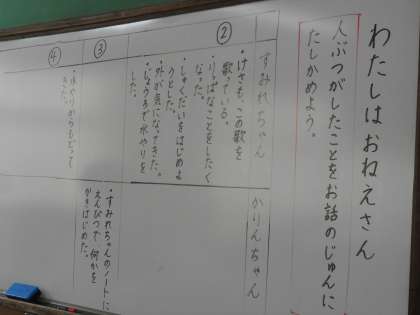 わたしはおねえさん
人ぶつがしたことをお話のじゅんに
たしかめよう。
すみれちゃん
かりんちゃん
②
・けさも、この歌を
歌っている。
・りっぱなことをしたく
なった。
・しゅくだいをはじめよ
うとした。
・外が気になってきた。
・じょうろで水やりを
した。
③
・すみれちゃんのノートに
えんぴつで、何かを
かきはじめた。
④
・水やりからもどって
きた。